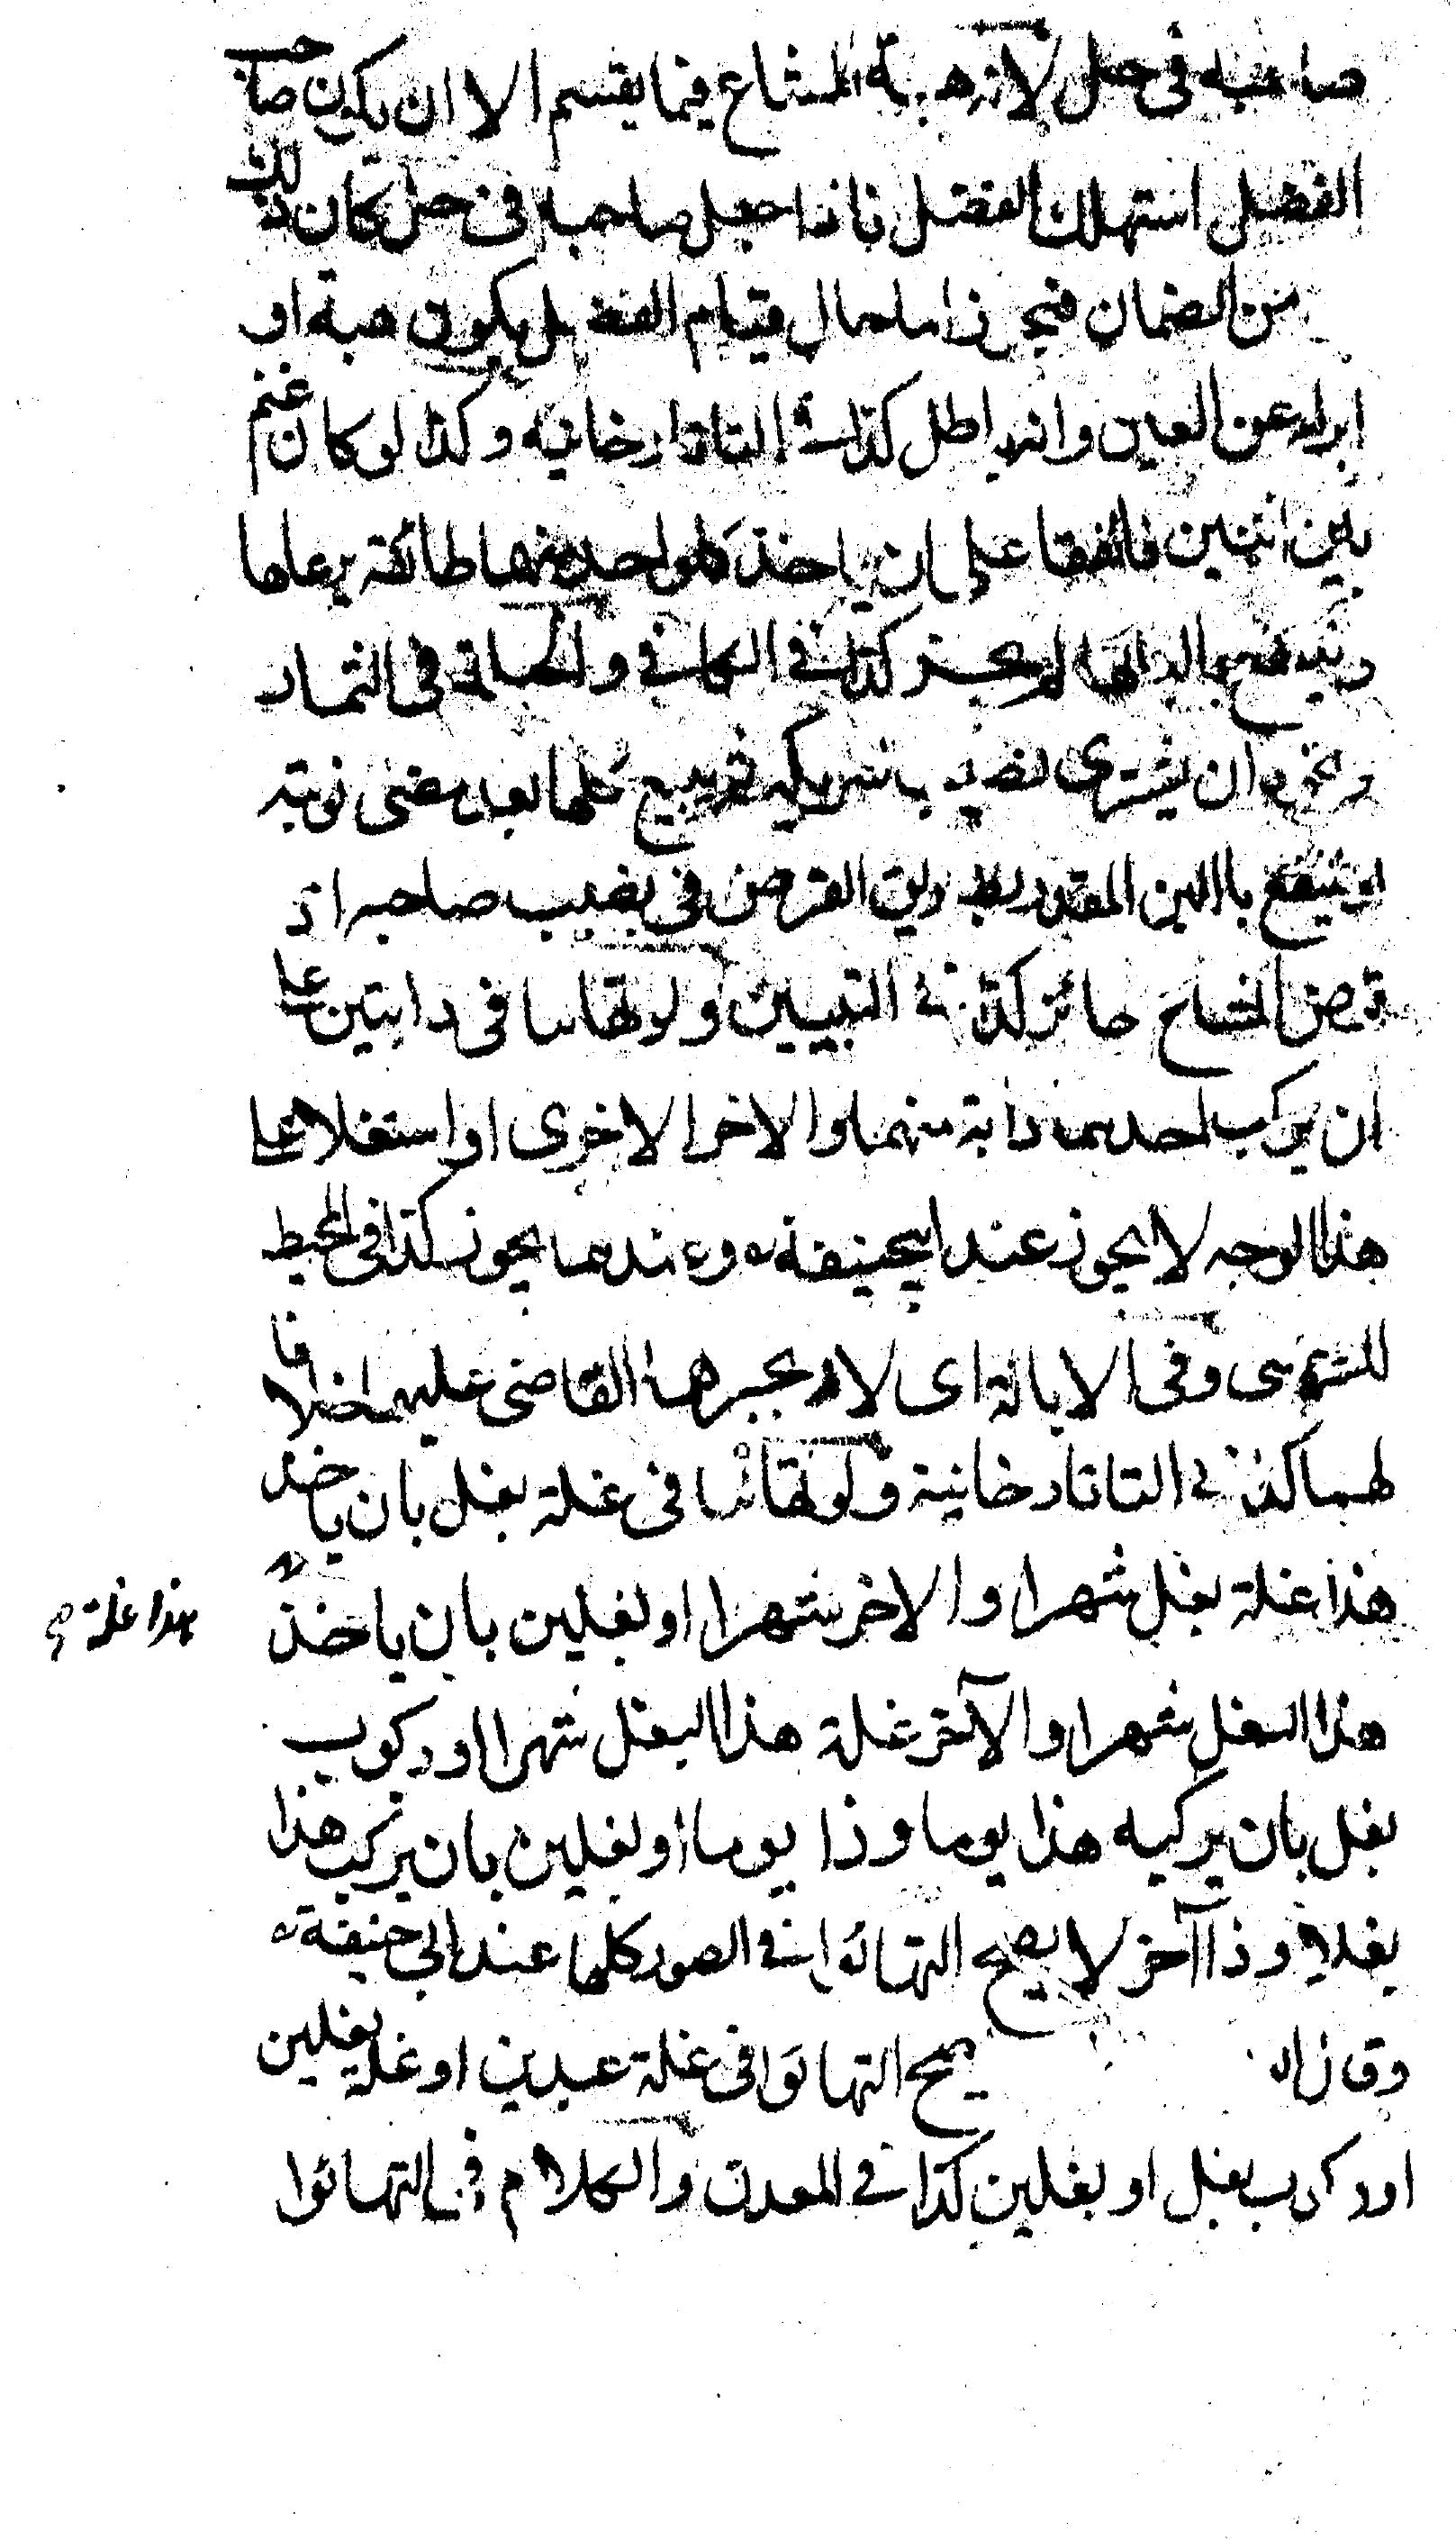 صاحبه فى حل لانه هبة المشاع فيما يقسم الا ان يكون صاحب
الفضل استهلك الفضل فاذا جعل صاحبه فى حل كان ذلك
من الضمان فيجوز اما حال قيام الفضل يكون هبة او
ابراء عن العين وانه باطل كذا فى التاتارخانيه وكذا لو كان غنم
بين اثنين فاتفقا على ان ياخذ كل واحد منهما طائفة يرعاها
وينتفع بالبانها لم يجز كذا فى الكافى والحيلة فى الثمار
ونحوه ان يشترى نصيب شريكه ثم يبيع كلها بعد مضى نوبته
او ينتفع باللبن المقدر بطريق القرض فى نصيب صاحبه اذ
قرض المشاع جائز كذا فى التبيين ولو تهائيا فى دابتين على
ان يركب احدهما دابة منهما والاخر الاخرى او استغلا على
هذا الوجه لا يجوز عند ابيحنيفة ره وعندهما يجوز كذا فى المحيط
للسرخسى وفى الابانة اى لا يجبرهما القاضى عليه خلافا
لهما كذا فى التاتارخانية ولو تهائيا فى غلة بغل بان ياخذ
هذا غلة بغل شهرا والاخر شهرا او بغلين بان ياخذ
هذا غلة صح
هذا البغل شهرا والآخر غلة هذا البغل شهرا او ركوب
بغل بان يركبه هذا يوما وذا يوما او بغلين بان يركب هذا
بغلا وذا آخر لا يصح التهائوا فى الصور كلها عند ابى حنيفة ره
وقالا يصح التهائوا فى غلة عبدين او غلة بغلين
او ركوب بغل او بغلين كذا فى المعدن والكلام فى التهائوا